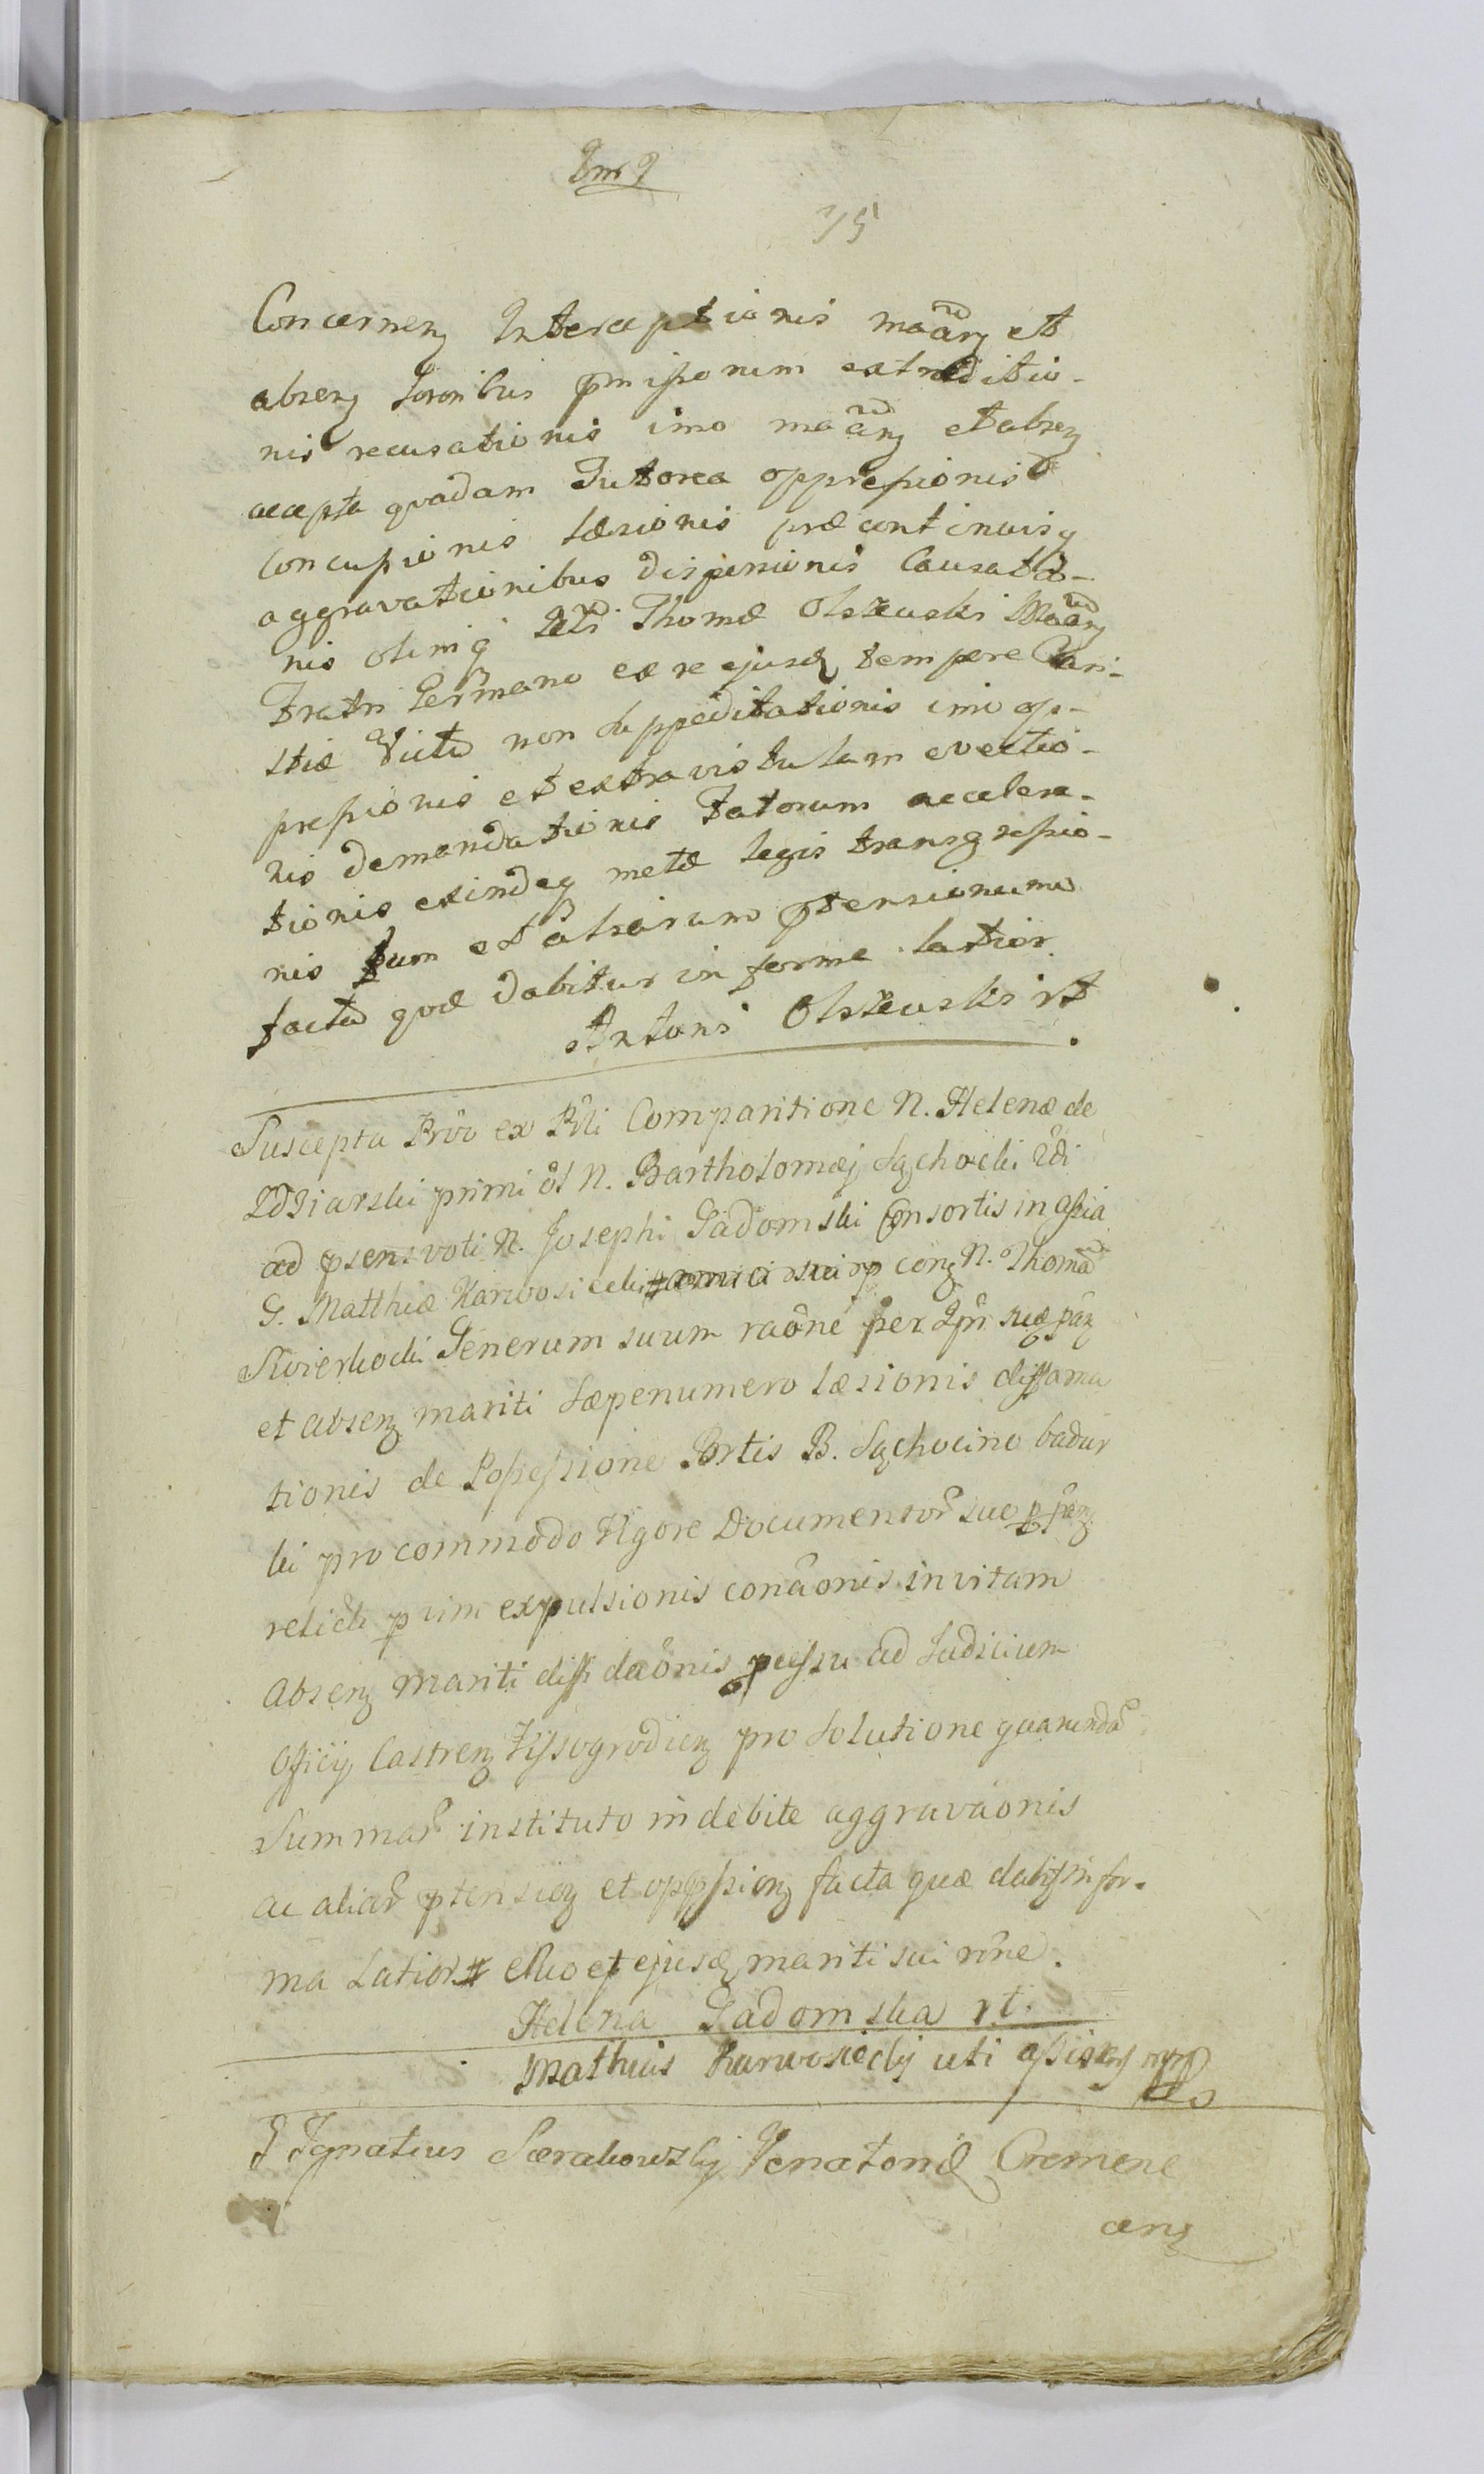 75
Concernen Interceptionis maãn et
absen Sororibus pmissorum extraditio-
nis recusationis imo maãn et absen
accepta quadam Tutorea oppressionis
Concussionis læsionis præ continuisq
aggravationibus dispersionis Causatio-
nis olimq Thomæ Olszewski Maãn
Fratri Germano ex re ejusd tempore Cari-
stiæ Victu non suppeditationis imo op-
pressionis et extra vistulam evectio-
nis demandationis Fatorum accelera-
tionis exindeq metæ legis transgressio-
nis et aliarum ptensionum
facta quæ dabitur in forma latior.
Antoni Olszewski
Suscepta Prõ ex Comparitione N. Helenæ de
Zdziarski primi N. Bartholomæj Sąchocki 2di
ad psens voti N. Josephi Gadomski Consortis in assia
G. Matthiæ Karwosiecki amici sui con N. Thomã
Swierkocki Generum suum raõne per
et absen mariti sæpenumero læsionis diffama
tionis de Possessione Sortis B. Sąchocino badur
ki pro commodo Vigore Documentor suo
relicti p vim expulsionis conãonis invitam
absen mariti diffidaõnis ad Judicium
Officij Castren Wyssogrodien pro Solutione quarundã
Summar instituto indebite aggravãonis
ac aliar ptension et oppssion facta quæ dabit in for-
ma Latior et ejusd mariti sui nõne.
Helena Gadomska
Mathias Karwosiecky uti assisten
Ignatius Sierakowsky Venatorid Cremene
cen